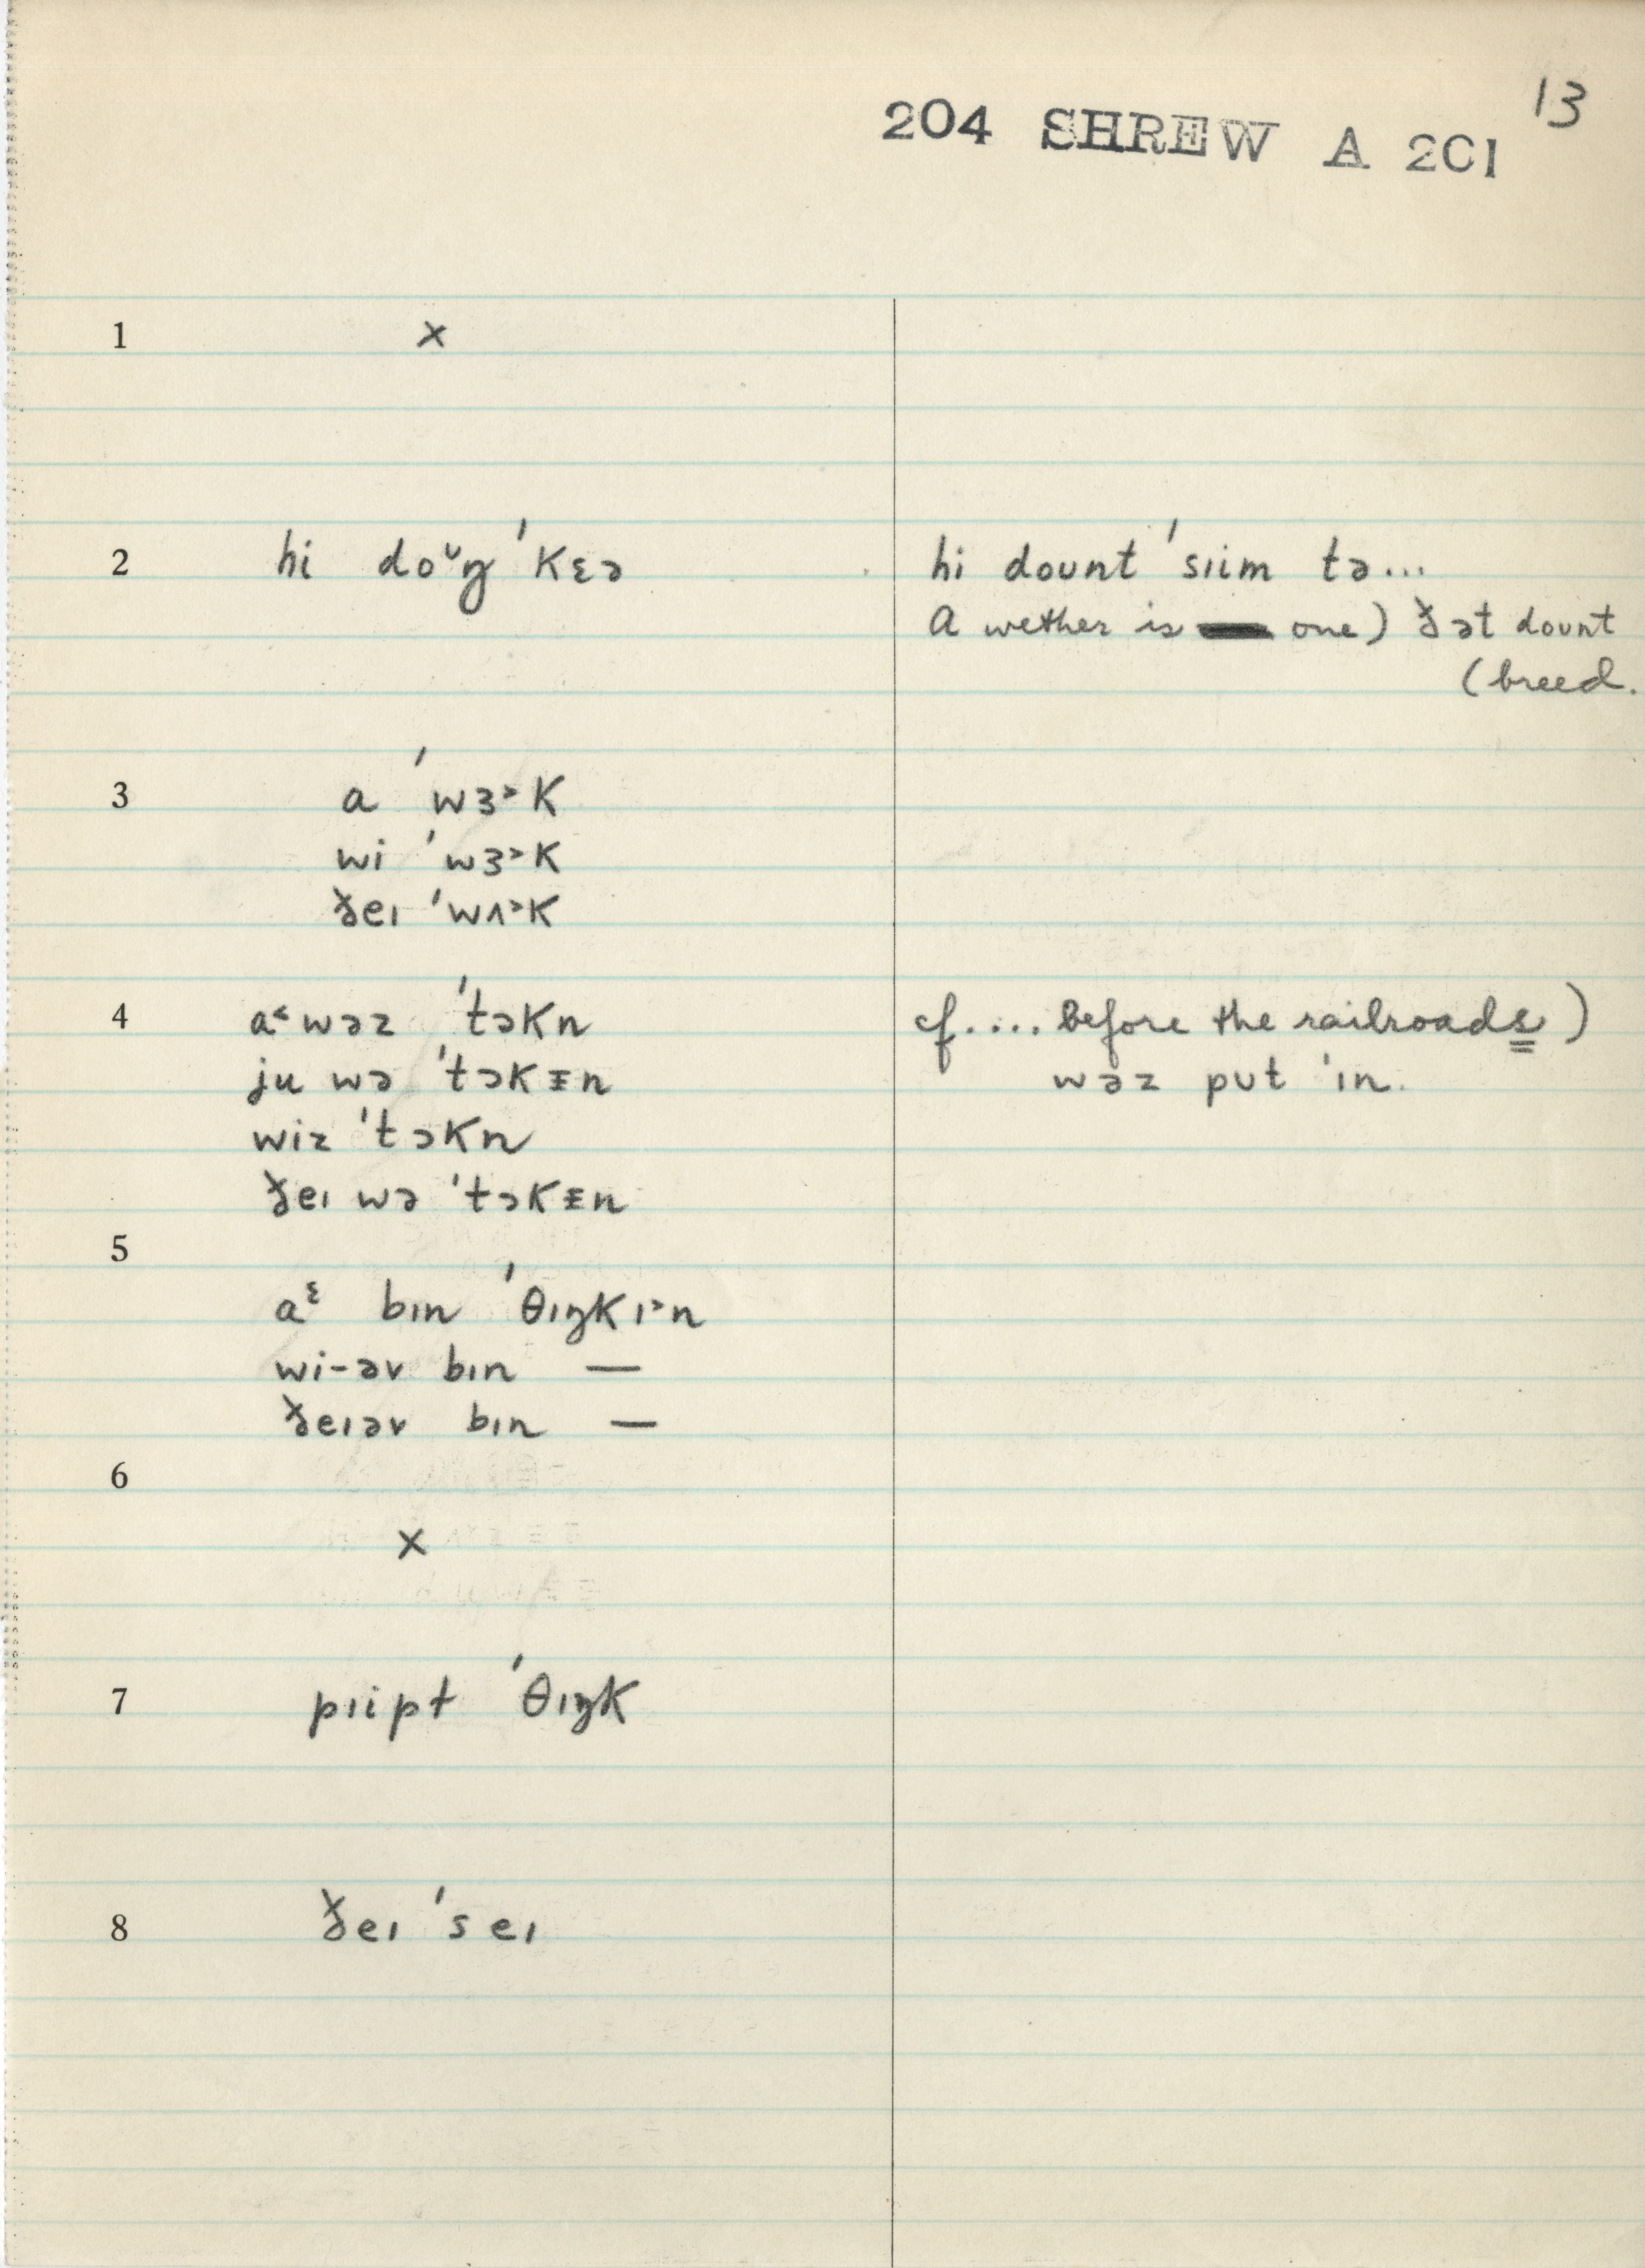 13
204 SHREW A 201
1 ×
2 hi doᶷŋ ˈkɛə hi dount ˈsɪim tə...
A wether is one) ðət dount
(breed.
3 a ˈwɜ˃k
wi ˈwɜ˃k
ðeɪ ˈwʌ˃k
4 a˂ wəz ˈtɔkn cf.... before the railroads)
ju wə ˈtɔkɪ̵n wəz put ˈɪn.
wiz ˈtɔkn
ðeɪ wə ˈtɔkɪ̵n
5
aᵋ bɪn ˈθɪŋkɪ˃n
wi-əv bɪn —
ðeɪəv bɪn —
6
×
7 pɪipt ˈθɪŋk
8 ðeɪ ˈseɪ